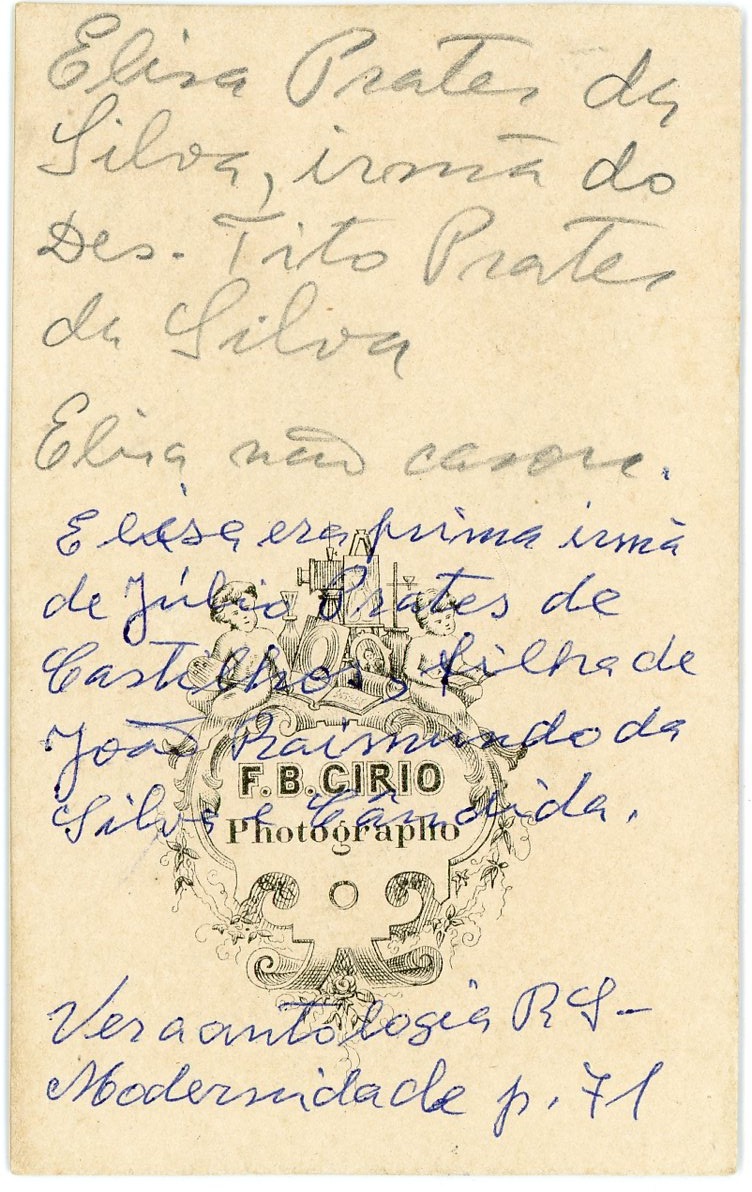 Elisa Prates da
Silva, irmã do
Des. Tito Prates
da Silva
Elisa não casou.
Elisa era prima irmã
de Júlio Prates de
Castilhos, filha de
João Raimundo da
Silva e Cândida.
F. B. CIRIO
Photographo
Ver a antologia RS-
Modernidade p. 71